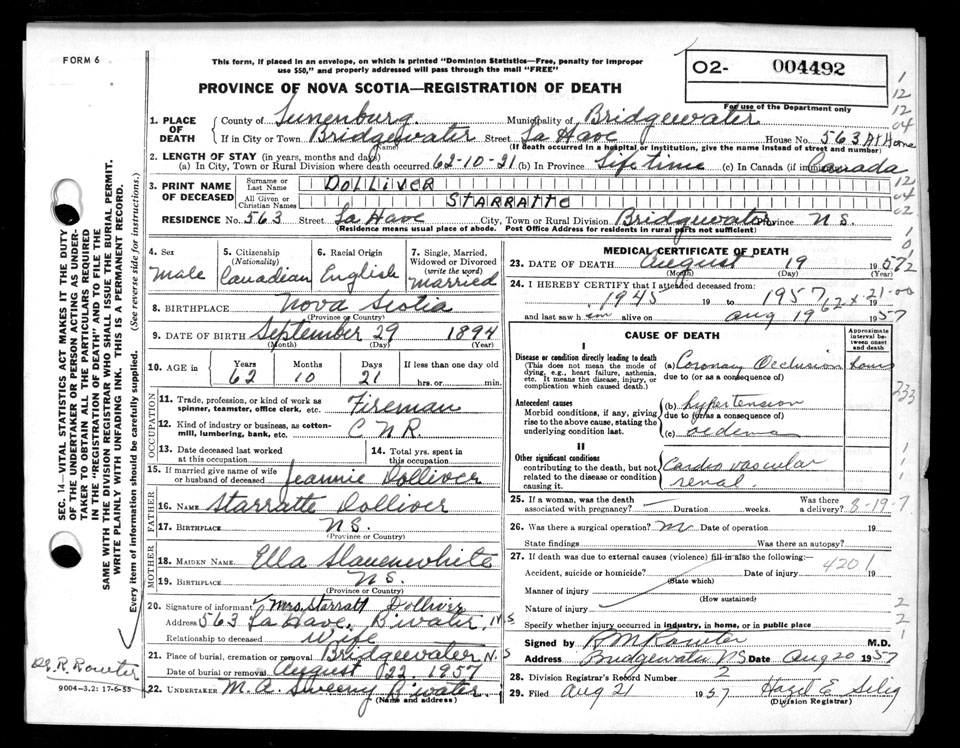 FORM 6
This form, if placed in an envelope, on which is printed "Dominion Statistics—Free, penalty for improper
use $50," and properly addressed will pass through the mail "FREE"
O2- 004492
For use of the Department only
PROVINCE OF NOVA SCOTIA—REGISTRATION OF DEATH
1. PLACE OF DEATH
County of Lunenburg Municipality of Bridgewater
If in City or Town Bridgewater Street La Have House No. 563 At Home
(Name) (If death occurred in a hospital or institution, give the name instead of street and number)
2. LENGTH OF STAY (in years, months and days)
(a) In City, Town or Rural Division where death occurred 62-10-21 (b) In Province Life time (c) In Canada (if immigrant) Canada
3. PRINT NAME OF DECEASED
Surname or Last Name DOLLIVER
All Given or Christian Names STARRATTE
RESIDENCE No. 563 Street La Have City, Town or Rural Division Bridgewater Province N S.
(Residence means usual place of abode. Post Office Address for residents in rural parts not sufficient)
4. Sex Male
5. Citizenship (Nationality) Canadian
6. Racial Origin English
7. Single, Married, Widowed or Divorced (write the word) Married
8. BIRTHPLACE Nova Scotia
(Province or Country)
9. DATE OF BIRTH September 29 1894
(Month) (Day) (Year)
10. AGE Years 62 Months 10 Days 21 If less than one day old hrs. or min.
OCCUPATION
11. Trade, profession, or kind of work as spinner, teamster, office clerk, etc. Fireman
12. Kind of industry or business, as cotton-mill, lumbering, bank, etc. C N R.
13. Date deceased last worked at this occupation
14. Total yrs. spent in this occupation
15. If married give name of wife or husband of deceased Jeannie Dolliver
FATHER
16. NAME Starratte Dolliver
17. BIRTHPLACE N S.
(Province or Country)
MOTHER
18. MAIDEN NAME Ella Slauenwhite
19. BIRTHPLACE N S.
(Province or Country)
20. Signature of informant Mrs. Starratt Dolliver
Address 563 La Have. B'water, N S
Relationship to deceased Wife
21. Place of burial, cremation or removal Bridgewater N. S
Date of burial or removal August 22. 1957
22. UNDERTAKER M. A Sweeny B'water.
(Name and address)
MEDICAL CERTIFICATE OF DEATH
23. DATE OF DEATH August 19 1957
(Month) (Day) (Year)
24. I HEREBY CERTIFY that I attended deceased from:
1945 19 to 1957 19
and last saw him alive on Aug 19 1957
CAUSE OF DEATH
Approximate interval between onset and death
I
Disease or condition directly leading to death
(This does not mean the mode of dying, e.g., heart failure, asthenia, etc. It means the disease, injury, or complication which caused death.)
(a) Coronary Occlusion hours
due to (or as a consequence of)
Antecedent causes
Morbid conditions, if any, giving rise to the above cause, stating the underlying condition last.
(b) hypertension
due to (or as a consequence of)
(c) oedema
II
Other significant conditions
contributing to the death, but not related to the disease or condition causing it.
Cardio vascular
renal.
25. If a woman, was the death associated with pregnancy? Duration weeks. Was there a delivery? 8-19-7
26. Was there a surgical operation? Date of operation 19
State findings Was there an autopsy?
27. If death was due to external causes (violence) fill in also the following:—
4201
Accident, suicide or homicide? Date of injury 19
(State which)
Manner of injury
(How sustained)
Nature of injury
Specify whether injury occurred in industry, in home, or in public place
Signed by R M Rowter M.D.
Address Bridgewater NS Date Aug 20 1957
28. Division Registrar's Record Number 2
29. Filed Aug 21 1957 Hazel E. Selig
(Division Registrar)
SEC. 14—VITAL STATISTICS ACT MAKES IT THE DUTY
OF THE UNDERTAKER OR PERSON ACTING AS UNDER-
TAKER TO OBTAIN ALL THE PARTICULARS REQUIRED
IN THE "REGISTRATION OF DEATH" AND TO FILE THE
SAME WITH THE DIVISION REGISTRAR WHO SHALL ISSUE THE BURIAL PERMIT.
WRITE PLAINLY WITH UNFADING INK. THIS IS A PERMANENT RECORD.
Every item of information should be carefully supplied. (See reverse side for instructions.)
Dr. R. Rowter
9004-3.2: 17-6-55